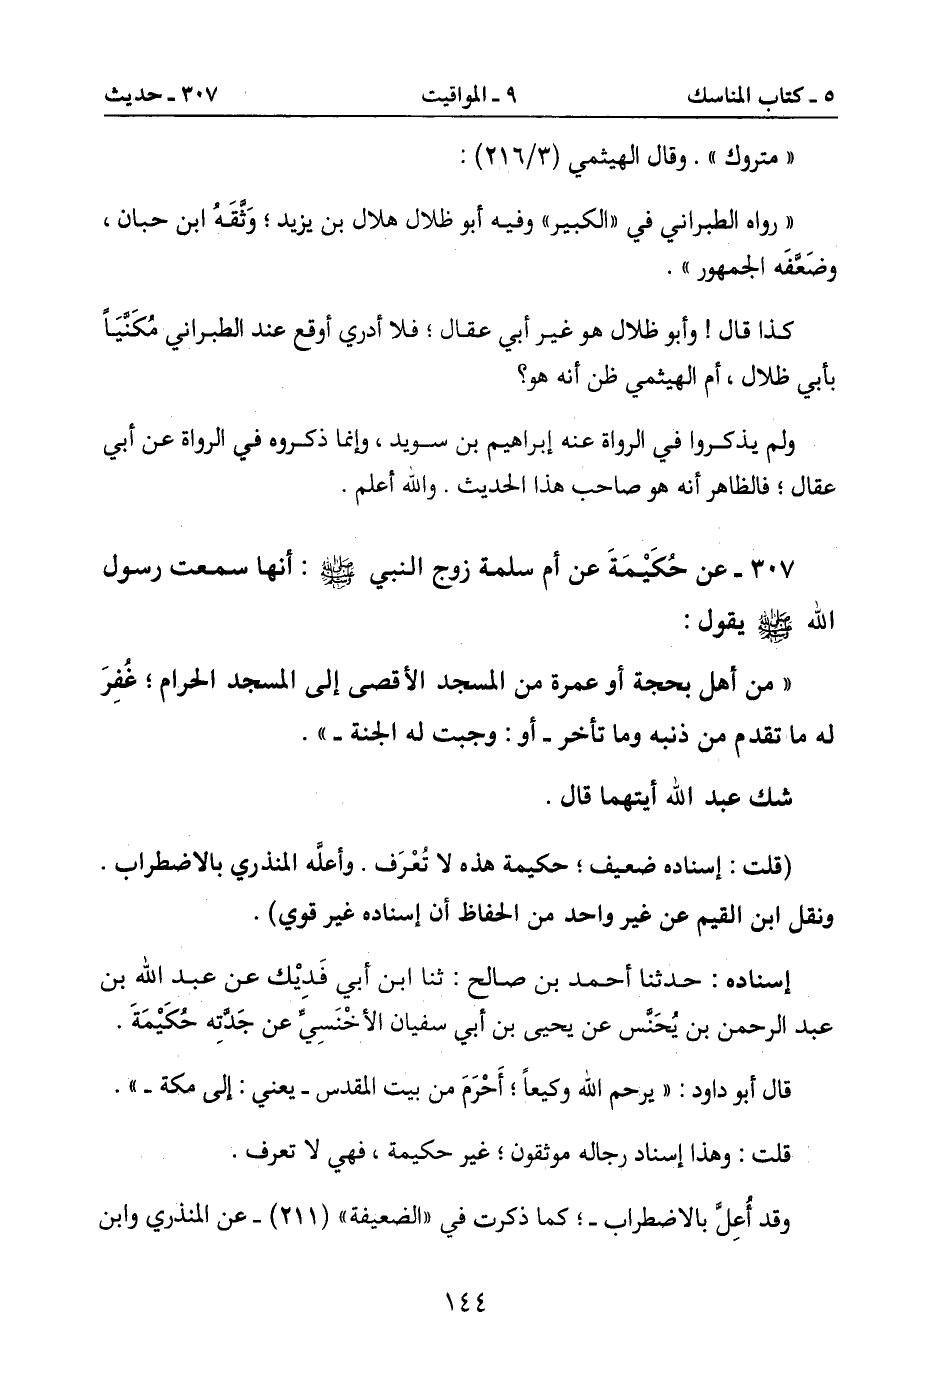 ٥ - كتاب المناسك ٩ - المواقيت ٣٠٧ - حديث
« متروك » . وقال الهيثمي (٢١٦/٣) :
« رواه الطبراني في «الكبير» وفيه أبو ظلال هلال بن يزيد ؛ وَثَّقَهُ ابن حبان ،
وضَعَّفَه الجمهور » .
كذا قال ! وأبو ظلال هو غير أبي عقال ؛ فلا أدري أوقع عند الطبراني مُكَنَّيَاً
بأبي ظلال ، أم الهيثمي ظن أنه هو؟
ولم يذكروا في الرواة عنه إبراهيم بن سويد ، وإنما ذكروه في الرواة عن أبي
عقال ؛ فالظاهر أنه هو صاحب هذا الحديث . والله أعلم .
٣٠٧ - عن حُكَيْمَةَ عن أم سلمة زوج النبي ﷺ : أنها سمعت رسول
الله ﷺ يقول :
« من أهل بحجة أو عمرة من المسجد الأقصى إلى المسجد الحرام ؛ غُفِرَ
له ما تقدم من ذنبه وما تأخر - أو : وجبت له الجنة - » .
شك عبد الله أيتهما قال .
(قلت : إسناده ضعيف ؛ حكيمة هذه لا تُعْرَف . وأعلَّه المنذري بالاضطراب .
ونقل ابن القيم عن غير واحد من الحفاظ أن إسناده غير قوي) .
إسناده : حدثنا أحمد بن صالح : ثنا ابن أبي فَدِيْك عن عبد الله بن
عبد الرحمن بن يُحَنَّس عن يحيى بن أبي سفيان الأخْنَسِيِّ عن جَدَّتِه حُكَيْمَةَ .
قال أبو داود : « يرحم الله وكيعاً ؛ أَحْرَمَ من بيت المقدس - يعني : إلى مكة - » .
قلت : وهذا إسناد رجاله موثقون ؛ غير حكيمة ، فهي لا تعرف .
وقد أُعِلَّ بالاضطراب - ؛ كما ذكرت في «الضعيفة» (٢١١) - عن المنذري وابن
١٤٤